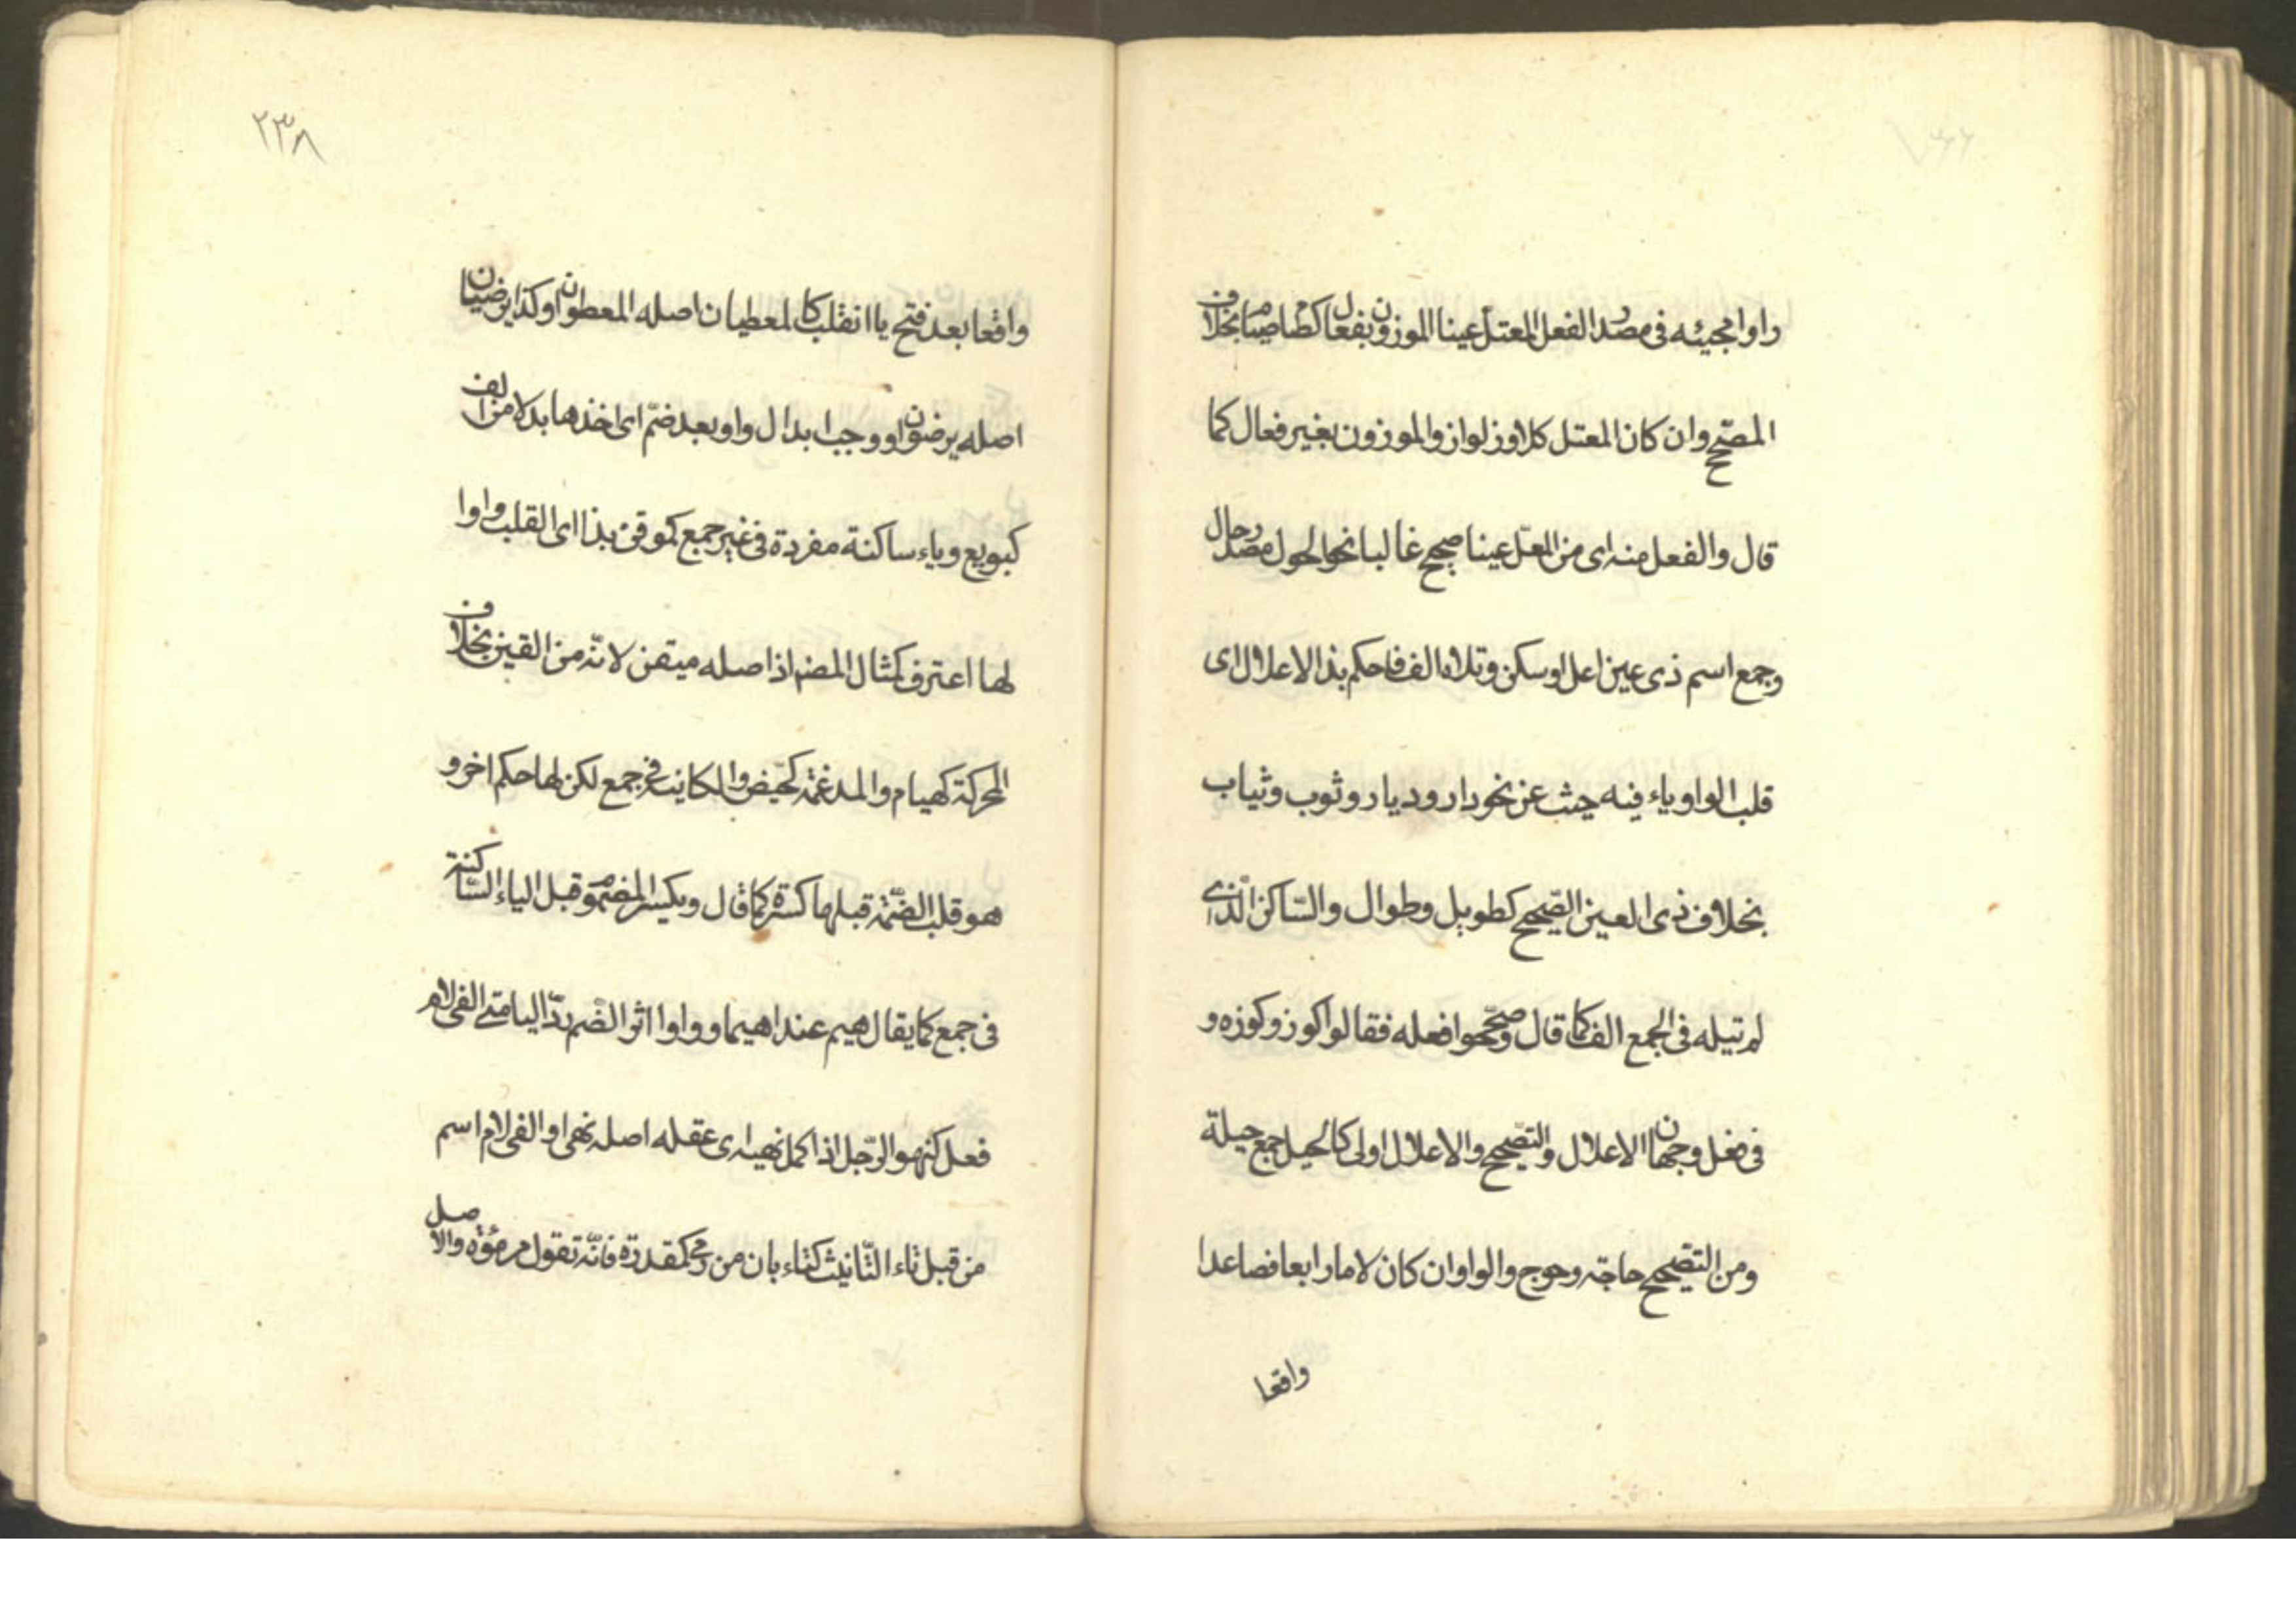 راوا مجيئه فى مصدر الفعل المعتل عينا الموزون بفعال كصام صياما بخلاف
المصحح وان كان المعتل كلاوز لواز والموزون بغير فعال كما
قال والفعل منه اى من المعل عينا صحيح غالبا نحو الحول مصدر حال
وجمع اسم ذى عين اعل او سكن وتلاه الف فاحكم بذا الاعلال اى
قلب الواو ياء فيه حيث عن نحو دار وديار وثوب وثياب
بخلاف ذى العين الصّحيح كطويل وطوال والسّاكن الّذى
لم تيله فى الجمع الف كما قال وصحّحوا فعله فقالوا كوز وكوزه و
فى فعل وجهان الاعلال والتّصحيح والاعلال اولى كالحيل جمع حيلة
ومن التّصحيح حاجة وحوج والواو ان كان لاما رابعا فصاعدا
واقعا
٢٣٨
واقعا بعد فتح يا انقلب كالمعطيان اصله المعطوان وكذا يرضيان
اصله يرضوان ووجب ابدال واو بعد ضمّ اى اخذها بدلا من الف
كبويع وياء ساكنة مفردة فى غير جمع كموقن بذا اى القلب واوا
لها اعترف كمثال المضم اذ اصله ميقن لانّه من اليقين بخلاف
المحركة كهيام والمدغمة كحيّض والكاينة فى جمع لكن لها حكم اخر و
هو قلب الضّمّة قبلها كسرة كما قال ويكسر المضموم قبل الياء السّاكنة
فى جمع كما يقال هيم عند اهيما وواوا اثر الضّم ردّ اليا متى الفى لام
فعل كنهو الرّجل اذا كمل نهيه اى عقله اصله نهى او الفى لام اسم
من قبل تاء التّانيث كتاء بان من رمى كمقدرة فانّه تقول مرموة والاصل